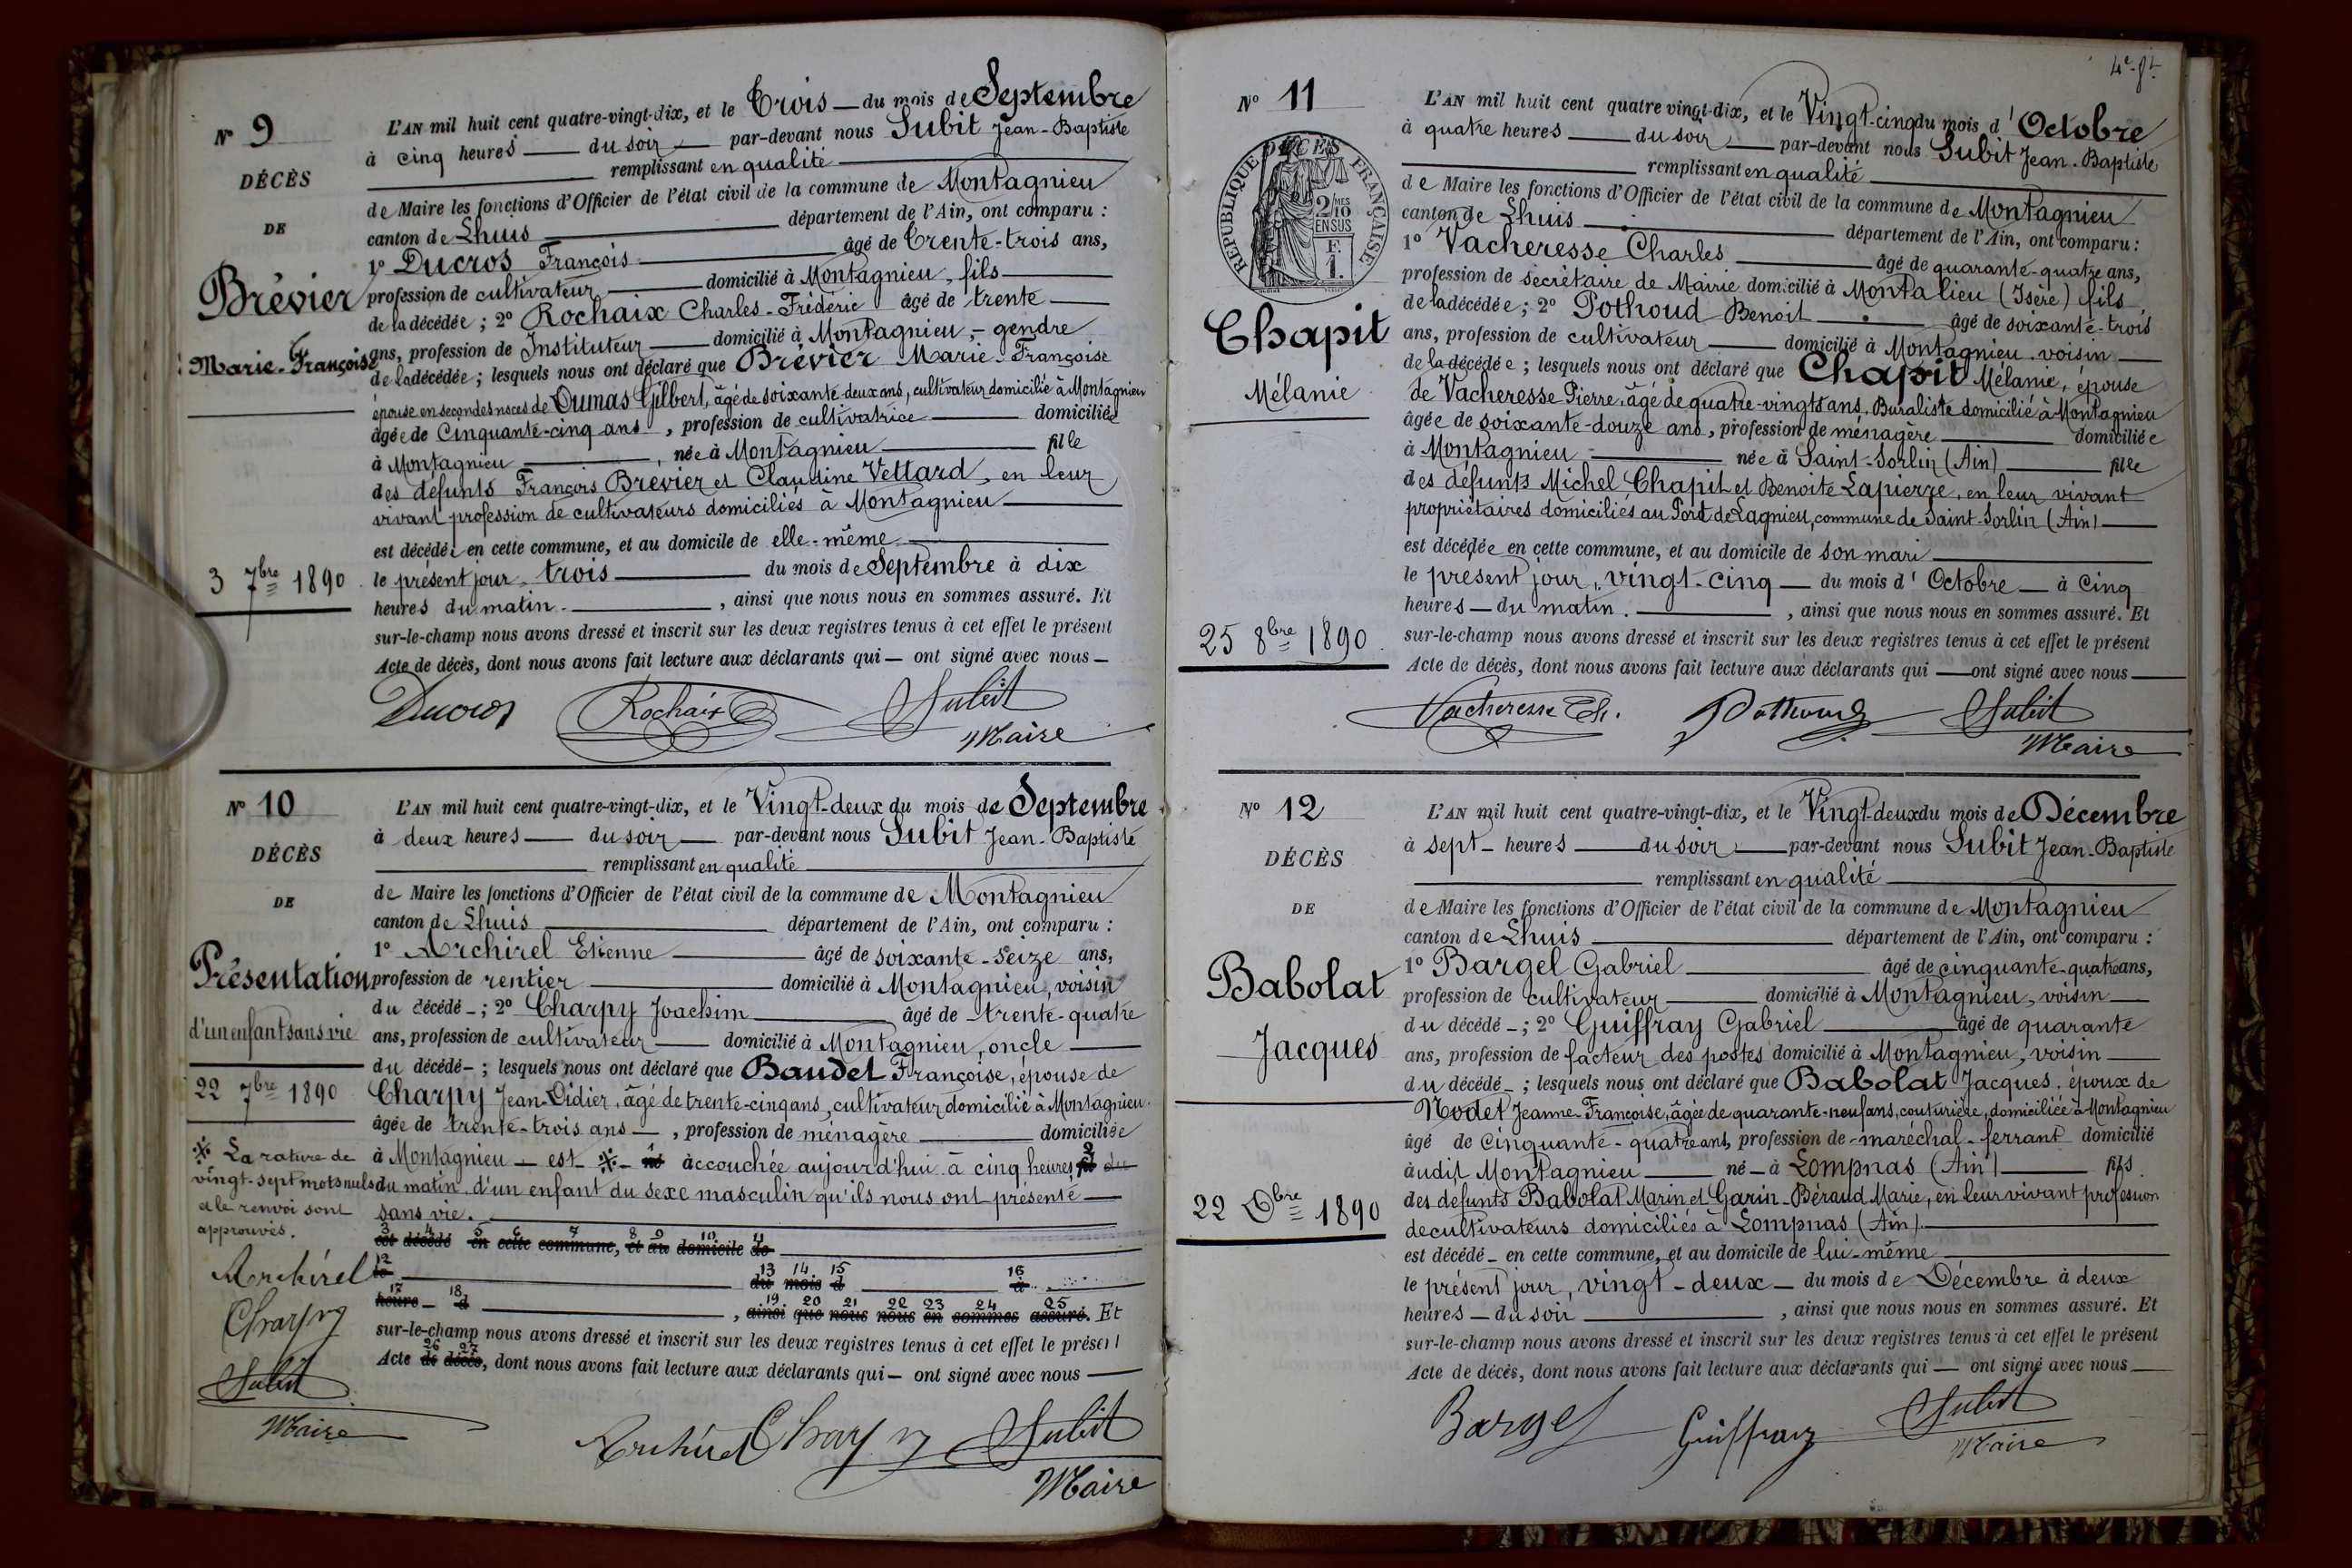 N° 9
DÉCÈS
DE
Brévier
Marie-Françoise
3 7bre 1890
L'AN mil huit cent quatre-vingt-dix, et le Trois — du mois de Septembre
à cinq heures — du soir — par-devant nous Subit Jean-Baptiste
remplissant en qualité
de Maire les fonctions d'Officier de l'état civil de la commune de Montagnieu
canton de Lhuis département de l'Ain, ont comparu :
1° Ducros François âgé de Trente-trois ans,
profession de cultivateur domicilié à Montagnieu, fils
de la décédée ; 2° Rochaix Charles-Frédéric âgé de trente
ans, profession de Instituteur domicilié à Montagnieu, - gendre
de la décédée ; lesquels nous ont déclaré que Brévier Marie-Françoise
épouse en secondes noces de Dumas Gilbert, âgé de soixante-deux ans, cultivateur domicilié à Montagnieu
âgée de Cinquante-cinq ans, profession de cultivatrice domiciliée
à Montagnieu, née à Montagnieu fille
des défunts François Brévier et Claudine Vettard, en leur
vivant profession de cultivateurs domiciliés à Montagnieu
est décédée en cette commune, et au domicile de elle-même
le présent jour, trois du mois de Septembre à dix
heures du matin. , ainsi que nous nous en sommes assuré. Et
sur-le-champ nous avons dressé et inscrit sur les deux registres tenus à cet effet le présent
Acte de décès, dont nous avons fait lecture aux déclarants qui — ont signé avec nous —
Ducros Rochaix Subit
Maire
N° 10
DÉCÈS
DE
Présentation
d'un enfant sans vie
22 7bre 1890
※ La rature de
vingt-sept mots nuls
et le renvoi sont
approuvés.
Archirel
Charpy
Subit
Maire
L'AN mil huit cent quatre-vingt-dix, et le Vingt-deux du mois de Septembre
à deux heures — du soir — par-devant nous Subit Jean-Baptiste
remplissant en qualité
de Maire les fonctions d'Officier de l'état civil de la commune de Montagnieu
canton de Lhuis département de l'Ain, ont comparu :
1° Archirel Etienne âgé de soixante-seize ans,
profession de rentier domicilié à Montagnieu, voisin
du décédé - ; 2° Charpy Joachim âgé de trente-quatre
ans, profession de cultivateur domicilié à Montagnieu, oncle
du décédé - ; lesquels nous ont déclaré que Baudet Françoise, épouse de
Charpy Jean-Didier, âgé de trente-cinq ans, cultivateur domicilié à Montagnieu.
âgée de trente-trois ans — , profession de ménagère domiciliée
à Montagnieu — est ※ né accouchée aujourd'hui à cinq heures 2 fil du
du matin, d'un enfant du sexe masculin qu'ils nous ont présenté
sans vie.
3 4 5 6 7 8 9 10 11
est décédé en cette commune, et au domicile de
12 13 14 15 16
le du mois d à
17 18 19 20 21 22 23 24 25
heure - d , ainsi que nous nous en sommes assuré. Et
sur-le-champ nous avons dressé et inscrit sur les deux registres tenus à cet effet le présent
26 27
Acte de décès, dont nous avons fait lecture aux déclarants qui — ont signé avec nous
Archirel Charpy Subit
Maire
4e ft
N° 11
DÉCÈS
RÉPUBLIQUE FRANÇAISE
2/10 MES
EN SUS
F.
1.
Chapit
Mélanie
25 8bre 1890
L'AN mil huit cent quatre vingt-dix, et le Vingt-cinq du mois d'Octobre
à quatre heures — du soir — par-devant nous Subit Jean-Baptiste
remplissant en qualité
de Maire les fonctions d'Officier de l'état civil de la commune de Montagnieu
canton de Lhuis département de l'Ain, ont comparu :
1° Vacheresse Charles âgé de quarante-quatre ans,
profession de secrétaire de Mairie domicilié à Montalieu (Isère) fils
de la décédée ; 2° Pothoud Benoit âgé de soixante-trois
ans, profession de cultivateur domicilié à Montagnieu. voisin
de la décédée ; lesquels nous ont déclaré que Chapit Mélanie, épouse
de Vacheresse Pierre, âgé de quatre-vingts ans, Buraliste domicilié à Montagnieu
âgée de soixante-douze ans, profession de ménagère domiciliée
à Montagnieu née à Saint-Sorlin (Ain) fille
des défunts Michel Chapit et Benoite Lapierre, en leur vivant
propriétaires domiciliés au Port de Lagnieu, commune de Saint-Sorlin (Ain)
est décédée en cette commune, et au domicile de son mari
le présent jour, vingt-cinq — du mois d'Octobre — à cinq
heures — du matin. , ainsi que nous nous en sommes assuré. Et
sur-le-champ nous avons dressé et inscrit sur les deux registres tenus à cet effet le présent
Acte de décès, dont nous avons fait lecture aux déclarants qui — ont signé avec nous
Vacheresse Ch. Pothoud Subit
Maire
N° 12
DÉCÈS
DE
Babolat
Jacques
22 Xbre 1890
L'AN mil huit cent quatre-vingt-dix, et le Vingt-deux du mois de Décembre
à sept - heures — du soir — par-devant nous Subit Jean-Baptiste
remplissant en qualité
de Maire les fonctions d'Officier de l'état civil de la commune de Montagnieu
canton de Lhuis département de l'Ain, ont comparu :
1° Bargel Gabriel âgé de cinquante-quatre ans,
profession de cultivateur domicilié à Montagnieu, voisin
du décédé - ; 2° Guiffray Gabriel âgé de quarante
ans, profession de facteur des postes domicilié à Montagnieu, voisin
du décédé - ; lesquels nous ont déclaré que Babolat Jacques, époux de
Nodet Jeanne-Françoise, âgée de quarante-neuf ans, couturière, domiciliée à Montagnieu
âgé de Cinquante-quatre ans, profession de maréchal-ferrant domicilié
à udit Montagnieu né - à Lompnas (Ain) fils
des défunts Babolat Marin et Garin-Béraud Marie, en leur vivant profession
de cultivateurs domiciliés à Lompnas (Ain).
est décédé - en cette commune, et au domicile de lui-même
le présent jour, vingt-deux — du mois de Décembre à deux
heures — du soir , ainsi que nous nous en sommes assuré. Et
sur-le-champ nous avons dressé et inscrit sur les deux registres tenus à cet effet le présent
Acte de décès, dont nous avons fait lecture aux déclarants qui — ont signé avec nous
Bargel Guiffray Subit
Maire